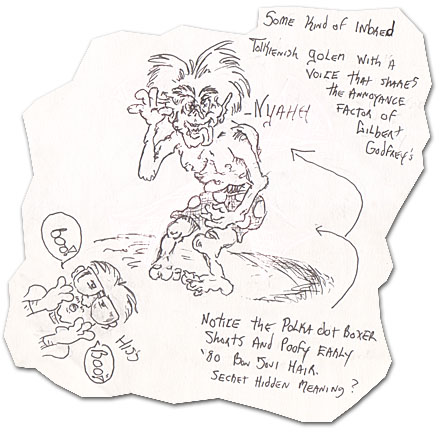 Some Kind of Inbred
Tolkienish golem with a
voice that shares
the annoyance
factor of
Gilbert
Godfrey's
-Nyahh
boo!
Hiss
Boo!
Notice the Polka dot boxer
shorts and poofy early
'80 Bon Jovi hair.
Secret Hidden Meaning?